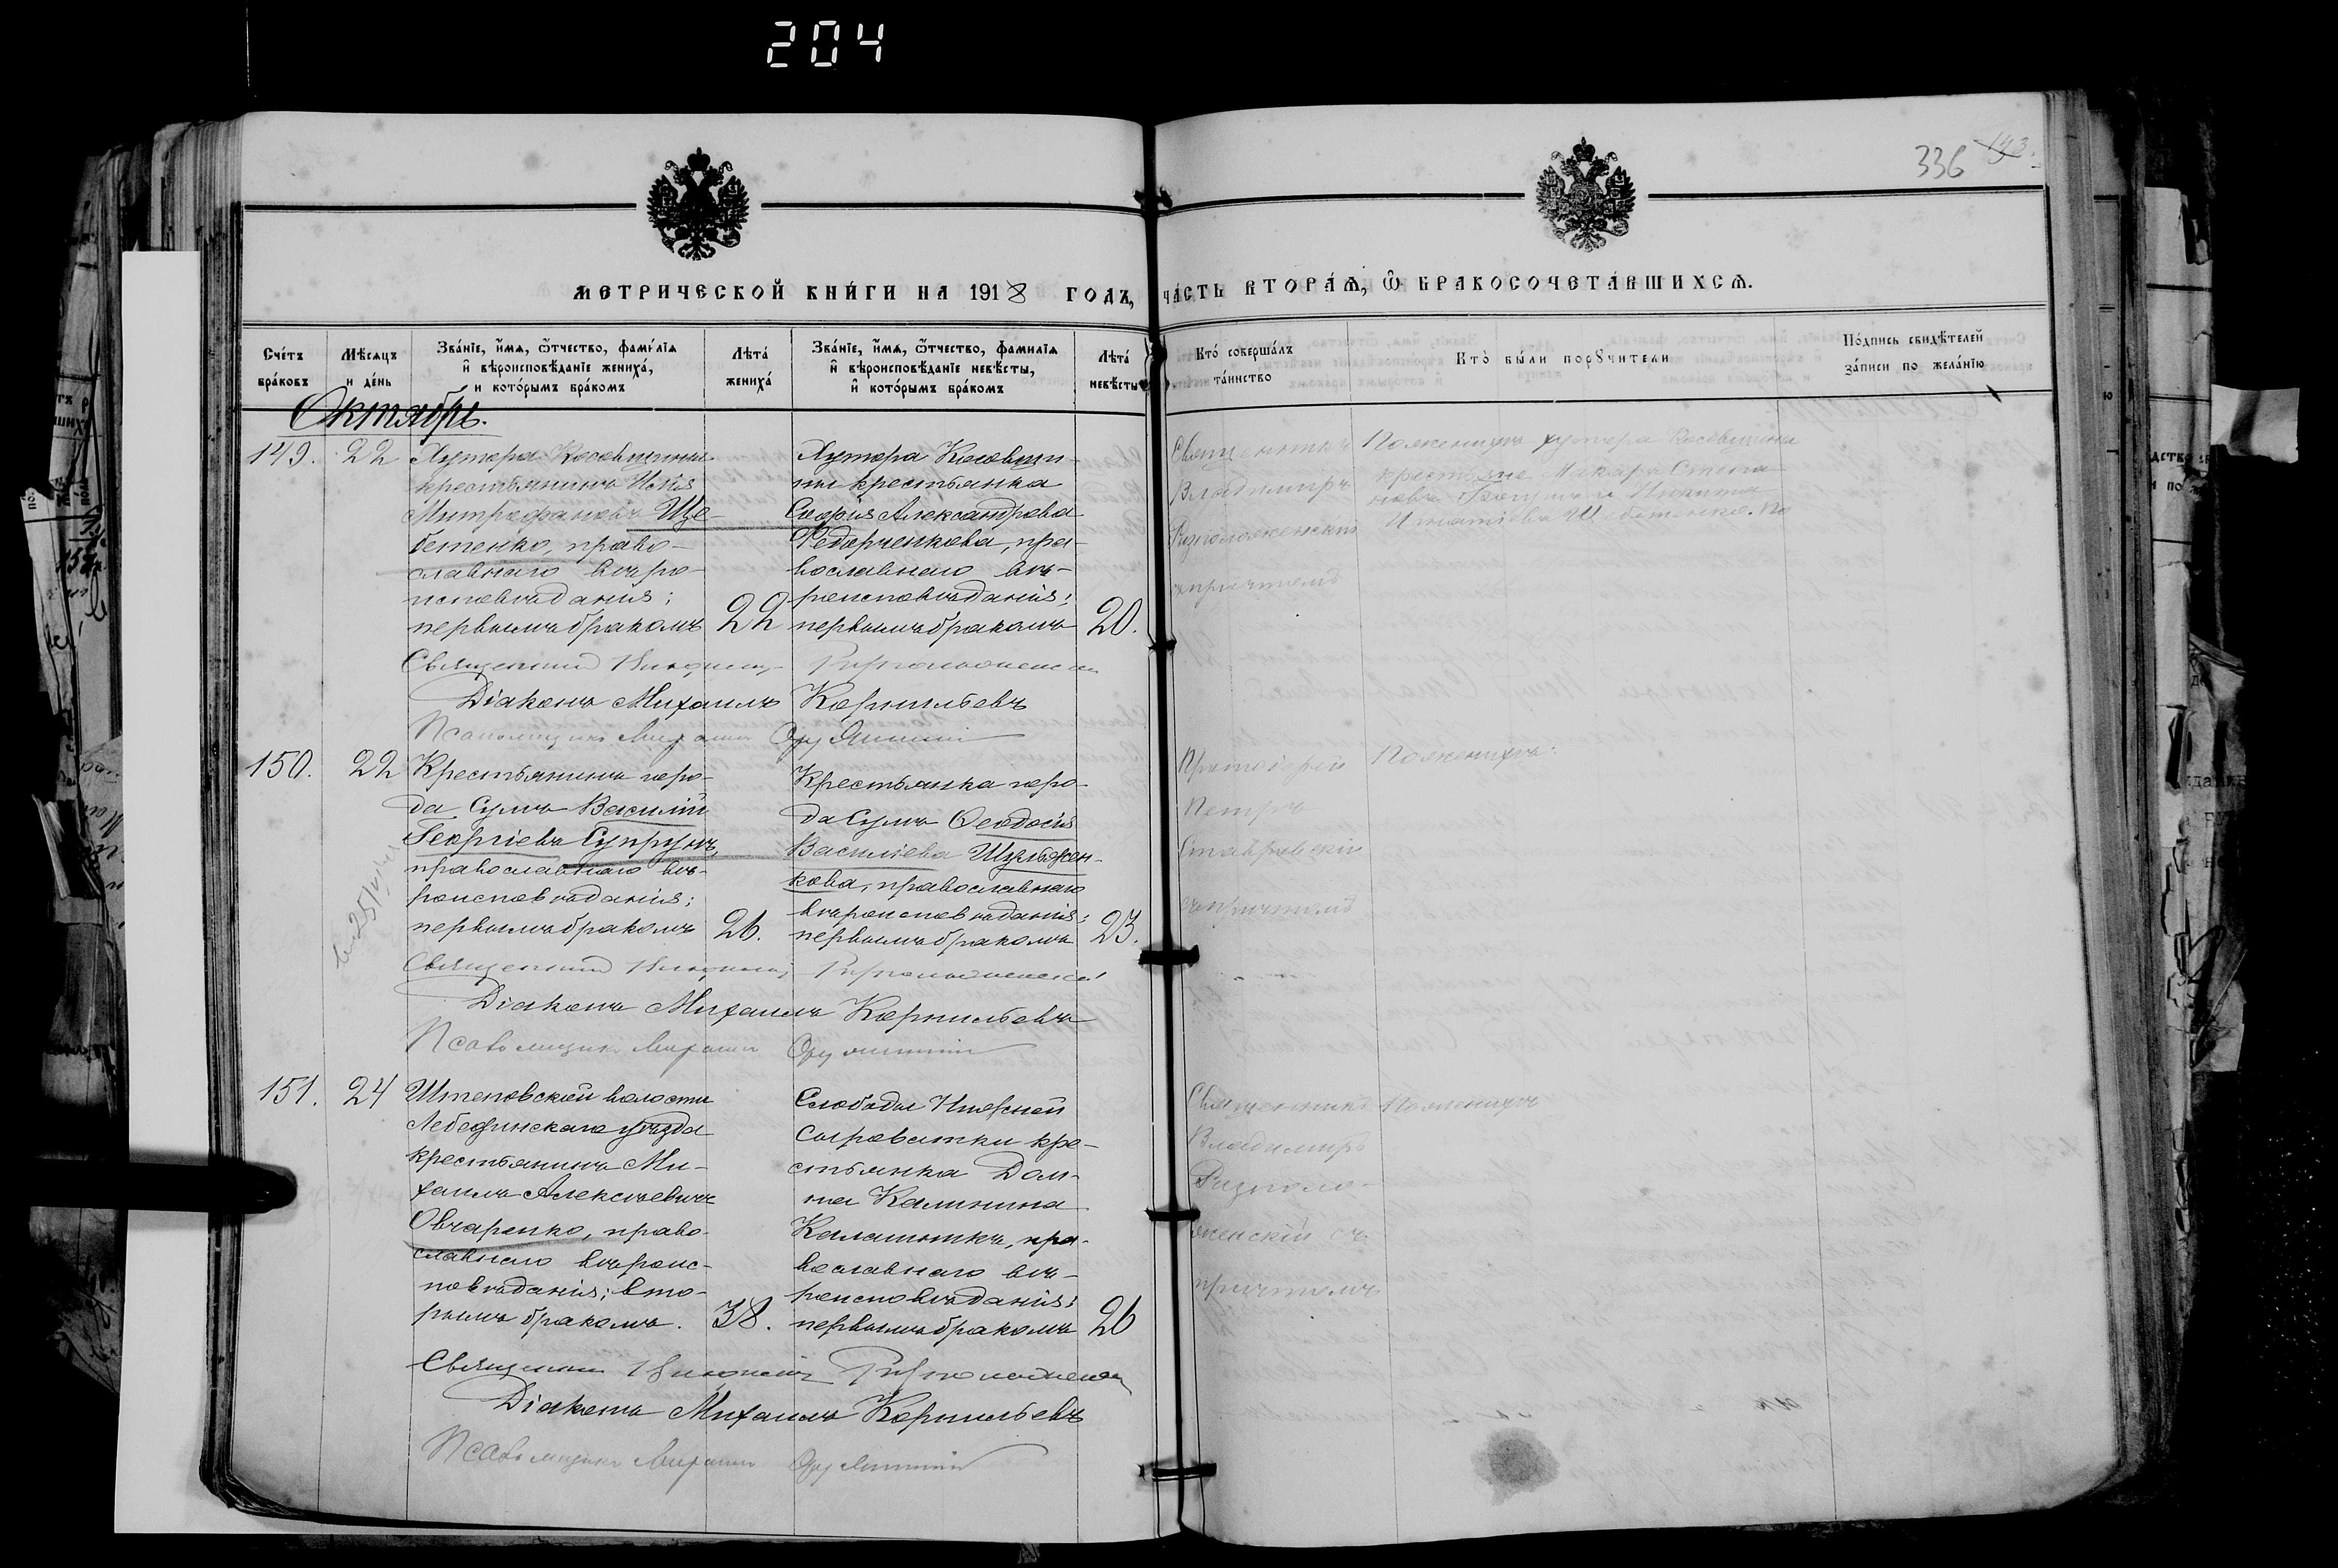 204
336 193.
МЕТРИЧЕСКОЙ КНИ́ГИ НА 1918 ГОДЪ, ЧА́СТЬ ВТОРА́Ѧ, Ѽ БРАКОСОЧЕТА́ВШИХСѦ.
Сче́тъ бра́ковъ
Мѣсяцъ и де́нь
Зва́нїе, и҆́мѧ, ѻ҆́тчество, фами́лїѧ и҆ вѣроисповѣ́данїе жениха́, и кото́рымъ бра́комъ
Лѣта̀ жениха́
Зва́нїе, и҆́мѧ, ѻ҆́тчество, фамилїѧ и҆ вѣроисповѣ́данїе невѣ́сты, и҆ кото́рымъ бра́комъ
Лѣта̀ невѣ́сты
Кто̀ соверша́лъ та́инство
Кто̀ бы́ли порꙋчители
По́дпись свидѣ́телей за́писи по жела́нїю
Октябрь.
149. 22
Хутора Косовщины
крестьянинъ Илія
Митрофановъ Ще-
бетенко, право-
славнаго вѣро-
исповѣданія;
первымъ бракомъ 22
Хутора Косовщи-
ны крестьянка
Софія Александрова
Федорченкова, пра-
вославнаго вѣ-
роисповѣданія;
первымъ бракомъ 20.
Священникъ
Владимиръ
Ризположенскій
съ причтомъ
По женихѣ хутора Косовщины
крестьяне Макаръ Степа-
новъ и Никита
Игнатіевъ Щебетенко. По
Священникъ Ризположенскій
Діаконъ Михаилъ Корнильевъ
Псаломщикъ Михаилъ
150. 22
Крестьянинъ горо-
да Сумъ Василій
Георгіевъ Супрунъ,
православнаго вѣ-
роисповѣданія;
первымъ бракомъ 26.
Крестьянка горо-
да Сумъ Ѳеодосія
Василіева Шульжен-
кова, православнаго
вѣроисповѣданія;
первымъ бракомъ 23.
Протоіерей
Петръ
Ставровскій
съ причтомъ
По женихѣ:
Священникъ Ризположенскій
Діаконъ Михаилъ Корнильевъ
Псаломщикъ Михаилъ
151. 24
Штеповской волости
Лебединскаго уѣзда
крестьянинъ Ми-
хаилъ Алексѣевичъ
Овчаренко, право-
славнаго вѣроис-
повѣданія; вто-
рымъ бракомъ. 38.
Слободы Нижней
Сыроватки кре-
стьянка Дом-
на Калинина
Калашникъ, пра-
вославнаго вѣ-
роисповѣданія;
первымъ бракомъ 26
Священникъ
Владимиръ
Ризполо-
женскій съ
причтомъ
По женихѣ
Священникъ Ризположенскій
Діаконъ Михаилъ Корнильевъ
Псаломщикъ Михаилъ